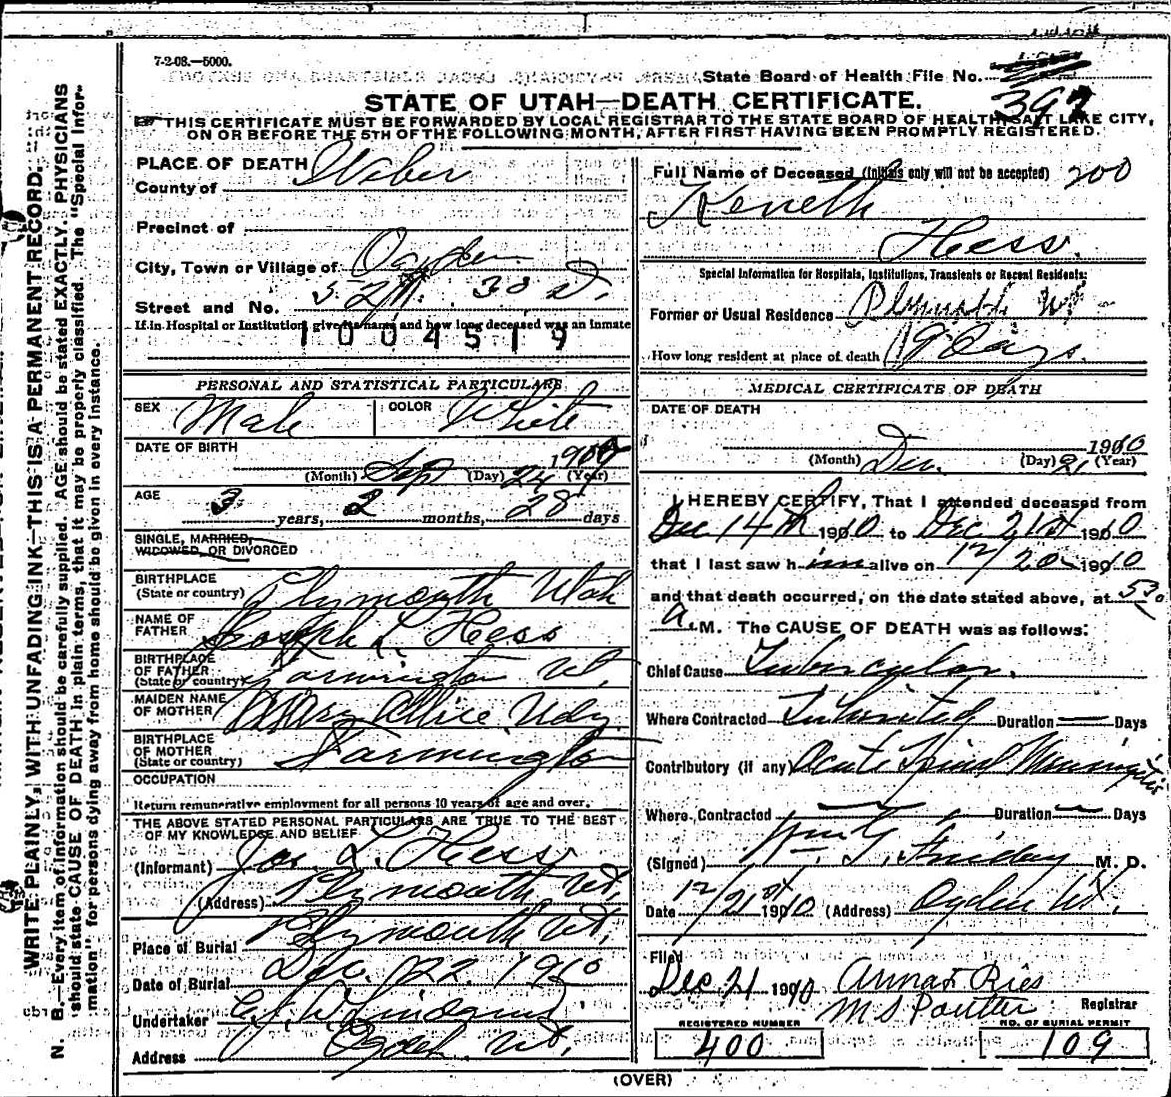 7-2-08.—5000.
State Board of Health File No. 397
STATE OF UTAH—DEATH CERTIFICATE.
THIS CERTIFICATE MUST BE FORWARDED BY LOCAL REGISTRAR TO THE STATE BOARD OF HEALTH, SALT LAKE CITY,
ON OR BEFORE THE 5TH OF THE FOLLOWING MONTH, AFTER FIRST HAVING BEEN PROMPTLY REGISTERED.
PLACE OF DEATH
County of Weber
Precinct of
City, Town or Village of Ogden
Street and No. 30
If in Hospital or Institution, give its name and how long deceased was an inmate
1004519
PERSONAL AND STATISTICAL PARTICULARS
SEX Male COLOR White
DATE OF BIRTH
(Month) Sep (Day) 24 (Year)
AGE
3 years, 2 months, 28 days
SINGLE, MARRIED,
WIDOWED, OR DIVORCED
BIRTHPLACE
(State or country) Plymouth Utah
NAME OF
FATHER Joseph L. Hess
BIRTHPLACE
OF FATHER
(State or country) Farmington Ut.
MAIDEN NAME
OF MOTHER Mary Allice Udy
BIRTHPLACE
OF MOTHER
(State or country) Farmington
OCCUPATION
Return remunerative employment for all persons 10 years of age and over.
THE ABOVE STATED PERSONAL PARTICULARS ARE TRUE TO THE BEST
OF MY KNOWLEDGE AND BELIEF
(Informant) Jos. L. Hess
(Address) Plymouth Ut.
Place of Burial Plymouth Ut.
Date of Burial Dec. 22 1910
Undertaker
Address Ogden Ut.
Full Name of Deceased (Initials only will not be accepted) 200
Keneth
Hess.
Special Information for Hospitals, Institutions, Transients or Recent Residents:
Former or Usual Residence Plymouth Ut
How long resident at place of death 19 Days.
MEDICAL CERTIFICATE OF DEATH
DATE OF DEATH
1910
(Month) Dec. (Day) 21 (Year)
I HEREBY CERTIFY, That I attended deceased from
Dec. 14th 1910 to Dec 21st 1910
that I last saw him alive on 12/20 1910
and that death occurred, on the date stated above, at 5 30
a. M. The CAUSE OF DEATH was as follows:
Chief Cause Tubercular.
Where Contracted Duration — Days
Contributory (if any) Acute Spinal Meningitis
Where Contracted — Duration — Days
(Signed) M. D.
Date 12/21st 1910 (Address) Ogden Ut.
Filed
Dec 21 1910 Anna F Ries
M S Poulter Registrar
REGISTERED NUMBER
400
NO. OF BURIAL PERMIT
109
(OVER)
WRITE PLAINLY, WITH UNFADING INK—THIS IS A PERMANENT RECORD.
N. B.—Every item of information should be carefully supplied. AGE should be stated EXACTLY. PHYSICIANS
should state CAUSE OF DEATH in plain terms, that it may be properly classified. The "Special Infor-
mation" for persons dying away from home should be given in every instance.